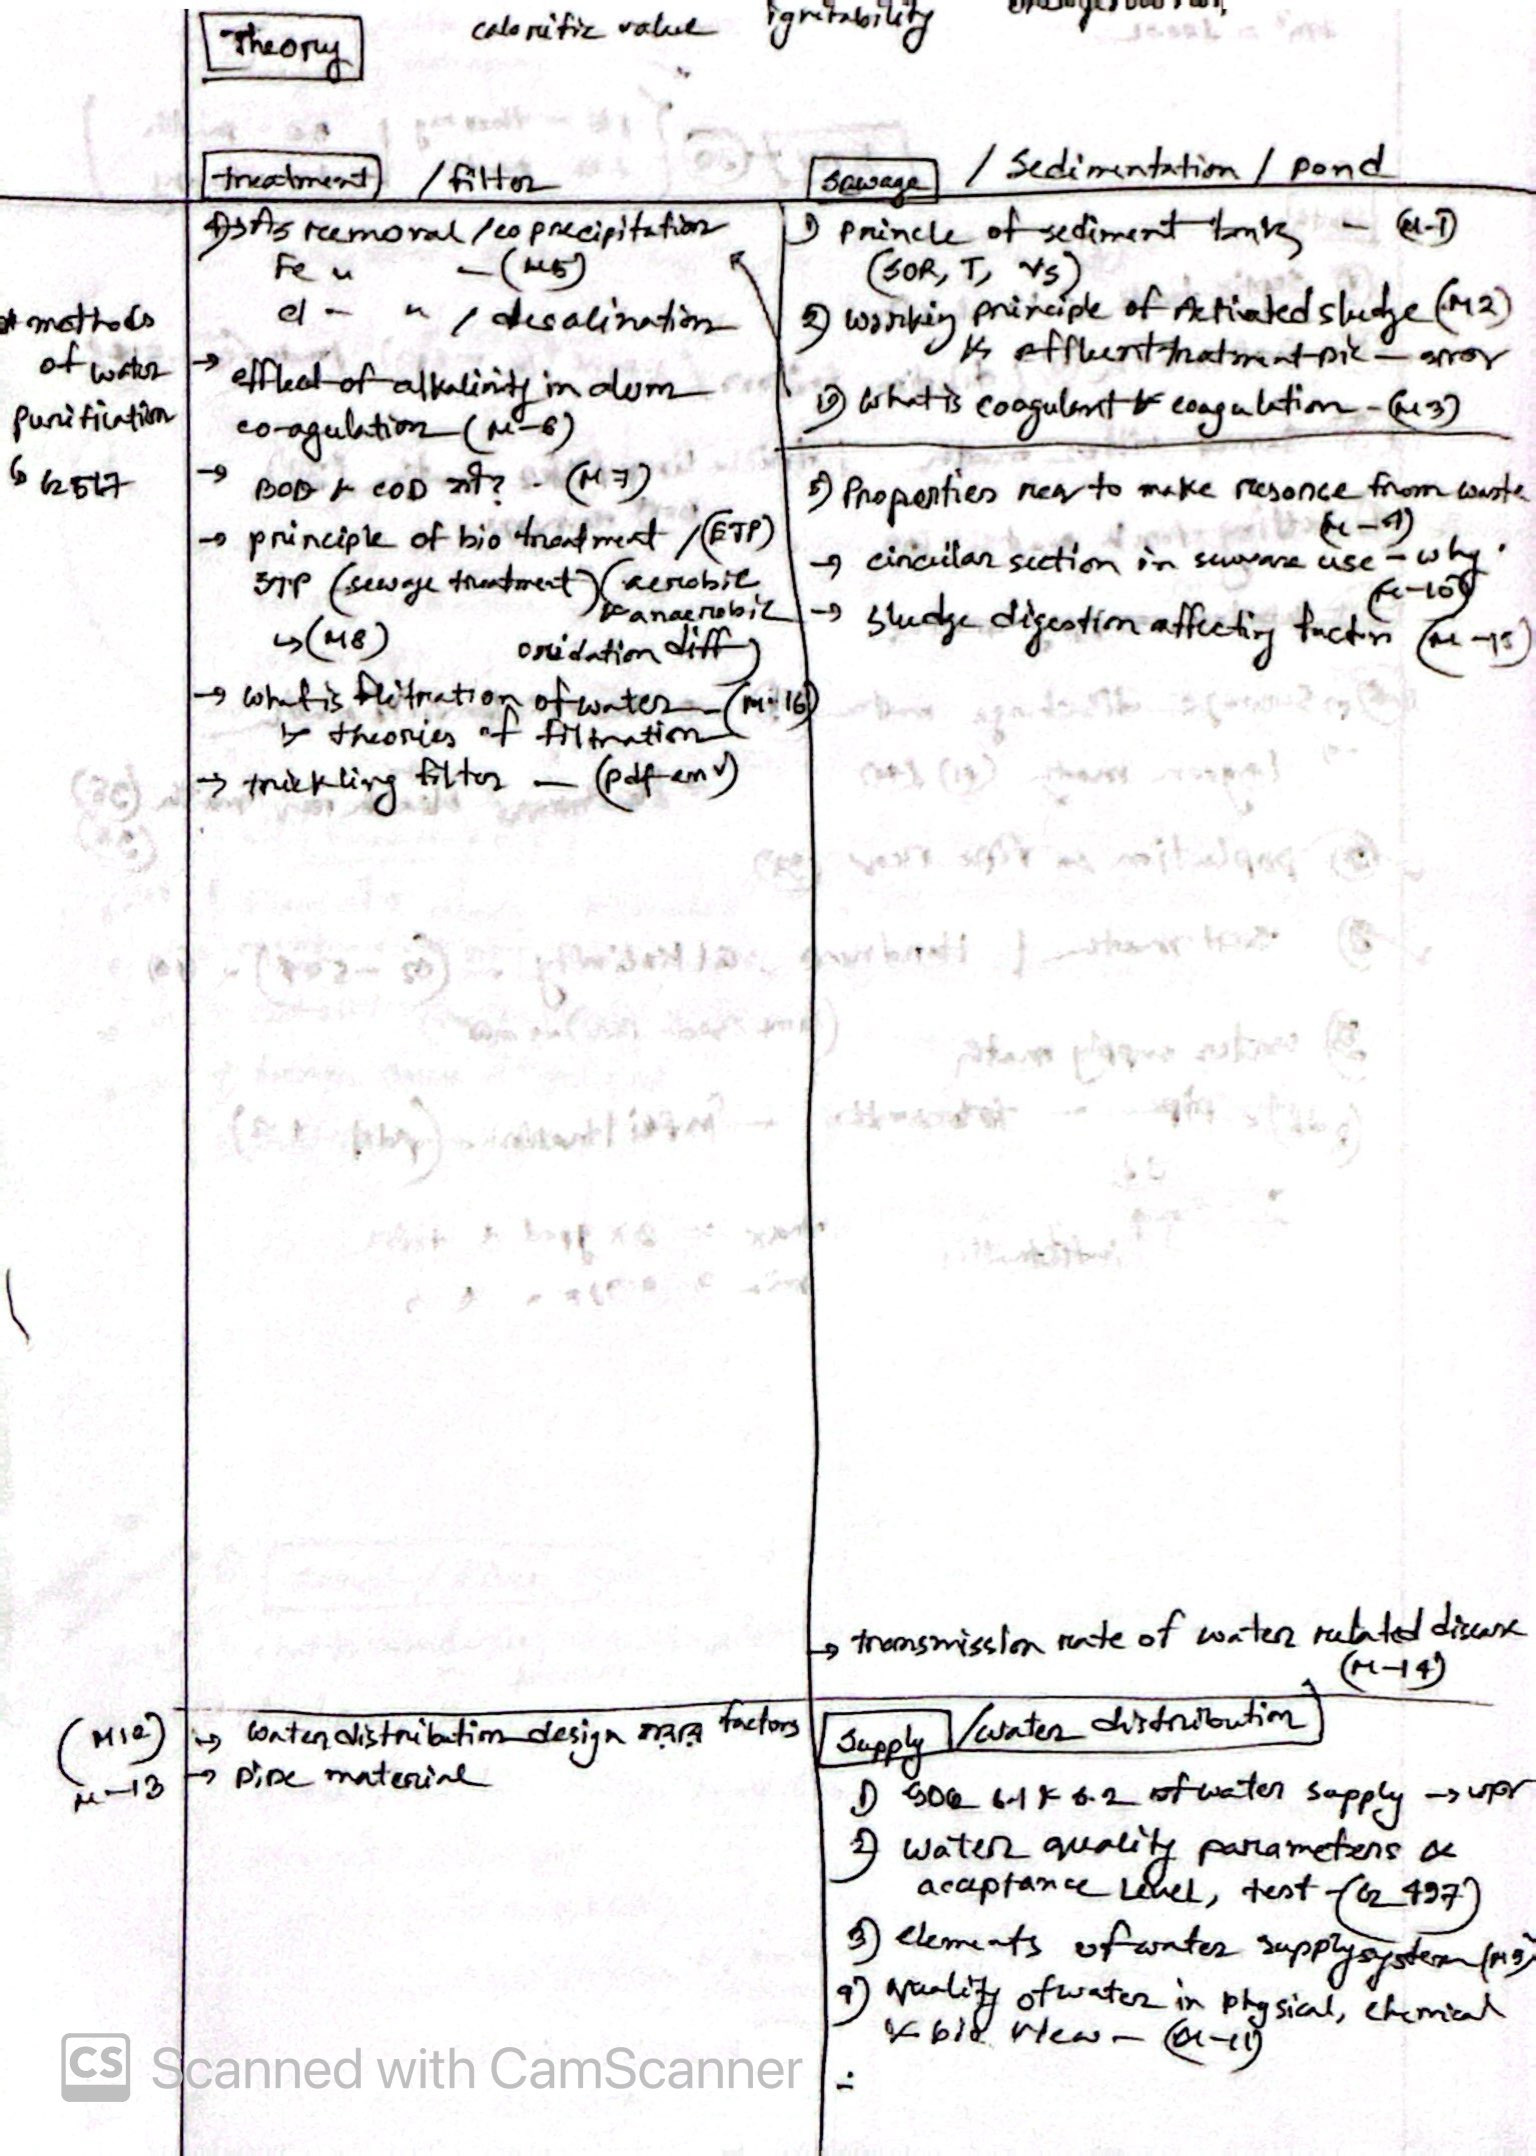 calorific value ignitability
Theory
treatment / filter
As removal / coprecipitation
Fe " - (M5)
cl - " / desalination
→ effect of alkalinity in alum
co-agulation (M-6)
→ BOD & COD কী? - (M7)
→ principle of bio treatment / (ETP)
STP (sewage treatment) (aerobic
& anaerobic
↳ (M8) oxidation diff)
→ what is flitration of water - (M-16)
& theories of filtration
→ trickling filter - (pdf env)
# methods
of water
purification
↳ 617
sewage / Sedimentation / pond
1) princle of sediment tank, - (M-1)
(SOR, T, VS)
2) working principle of Activated sludge (M2)
& effluent treatment pic - error
what is coagulant & coagulation - (M3)
5) Properties near to make resorce from waste
(M-4)
→ circular section in seware use - why
(M-10)
→ sludge digestion affecting factors (M-15)
→ transmission rate of water related disease
(M-14)
(M12) → water distribution design factors
M-13 → pipe material
Supply / water distribution
1) SDG 6.1 & 6.2 of water supply →
2) water quality parameters &
acceptance Level, test - (62_497)
3) elements of water supply system (M9)
4) quality of water in physical, chemical
& bio view - (M-11)
CS Scanned with CamScanner